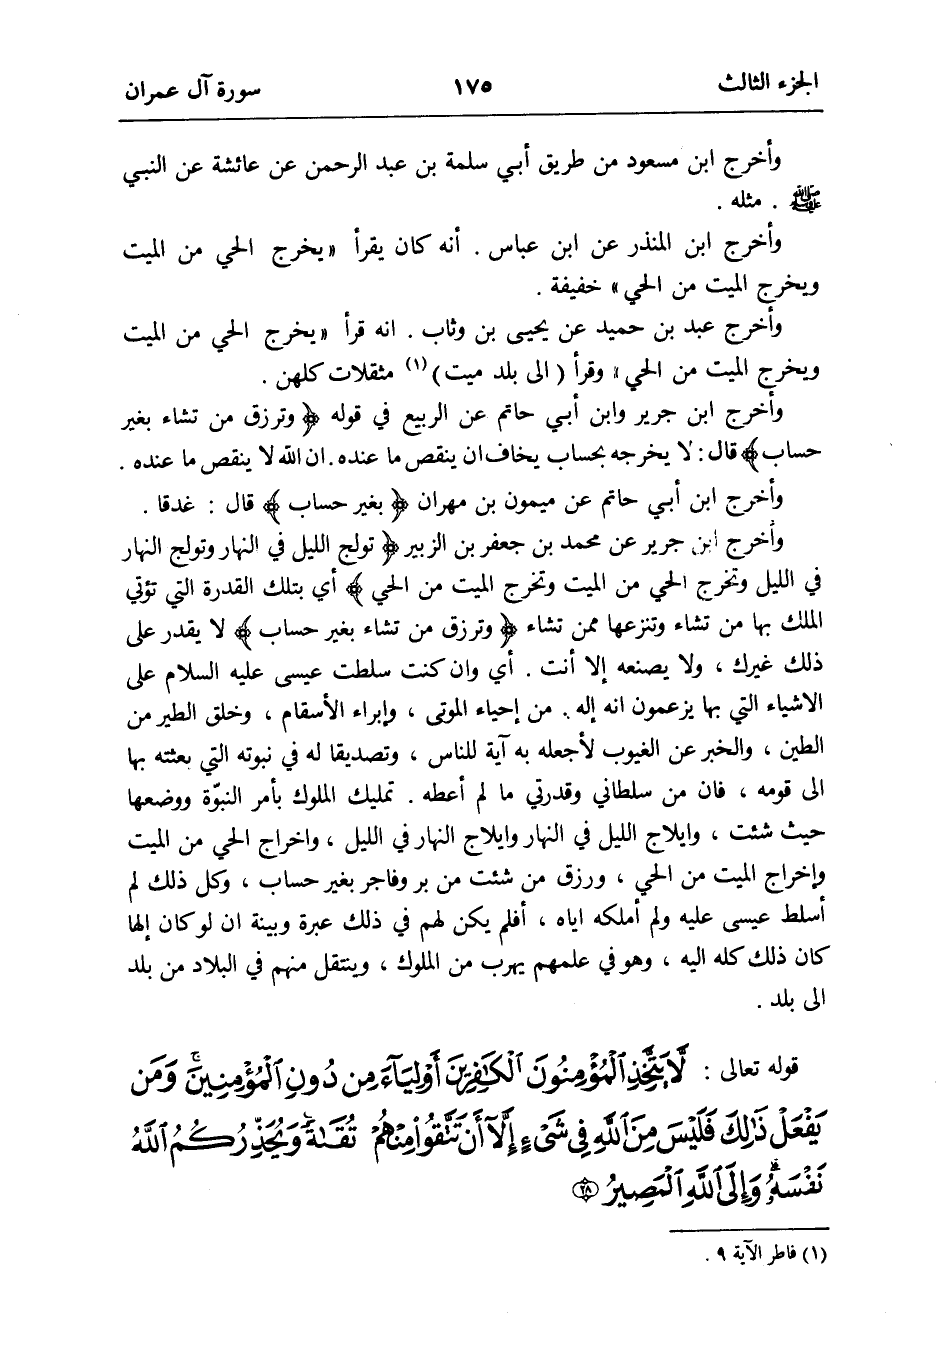 الجزء الثالث ١٧٥ سورة آل عمران
وأخرج ابن مسعود من طريق أبي سلمة بن عبد الرحمن عن عائشة عن النبي
ﷺ . مثله .
وأخرج ابن المنذر عن ابن عباس . أنه كان يقرأ « يخرج الحي من الميت
ويخرج الميت من الحي » خفيفة .
وأخرج عبد بن حميد عن يحيى بن وثاب . انه قرأ « يخرج الحي من الميت
ويخرج الميت من الحي » وقرأ ( الى بلد ميت ) (١) مثقلات كلهن .
وأخرج ابن جرير وابن أبي حاتم عن الربيع في قوله ﴿ وترزق من تشاء بغير
حساب ﴾ قال : لا يخرجه بحساب يخاف ان ينقص ما عنده . ان الله لا ينقص ما عنده .
وأخرج ابن أبي حاتم عن ميمون بن مهران ﴿ بغير حساب ﴾ قال : غدقا .
وأخرج ابن جرير عن محمد بن جعفر بن الزبير ﴿ تولج الليل في النهار وتولج النهار
في الليل وتخرج الحي من الميت وتخرج الميت من الحي ﴾ أي بتلك القدرة التي تؤتي
الملك بها من تشاء وتنزعها ممن تشاء ﴿ وترزق من تشاء بغير حساب ﴾ لا يقدر على
ذلك غيرك ، ولا يصنعه إلا أنت . أي وان كنت سلطت عيسى عليه السلام على
الاشياء التي بها يزعمون انه إله . من إحياء الموتى ، وإبراء الأسقام ، وخلق الطير من
الطين ، والخبر عن الغيوب لأجعله به آية للناس ، وتصديقا له في نبوته التي بعثته بها
الى قومه ، فان من سلطاني وقدرتي ما لم أعطه . تمليك الملوك بأمر النبوّة ووضعها
حيث شئت ، وايلاج الليل في النهار وايلاج النهار في الليل ، واخراج الحي من الميت
وإخراج الميت من الحي ، ورزق من شئت من بر وفاجر بغير حساب ، وكل ذلك لم
أسلط عيسى عليه ولم أملكه اياه ، أفلم يكن لهم في ذلك عبرة وبينة ان لو كان إلها
كان ذلك كله اليه ، وهو في علمهم يهرب من الملوك ، وينتقل منهم في البلاد من بلد
الى بلد .
قوله تعالى : لَّا يَتَّخِذِ ٱلْمُؤْمِنُونَ ٱلْكَٰفِرِينَ أَوْلِيَآءَ مِن دُونِ ٱلْمُؤْمِنِينَ ۖ وَمَن
يَفْعَلْ ذَٰلِكَ فَلَيْسَ مِنَ ٱللَّهِ فِى شَىْءٍ إِلَّآ أَن تَتَّقُوا۟ مِنْهُمْ تُقَىٰةً ۗ وَيُحَذِّرُكُمُ ٱللَّهُ
نَفْسَهُۥ ۗ وَإِلَى ٱللَّهِ ٱلْمَصِيرُ ٢٨
(١) فاطر الآية ٩ .